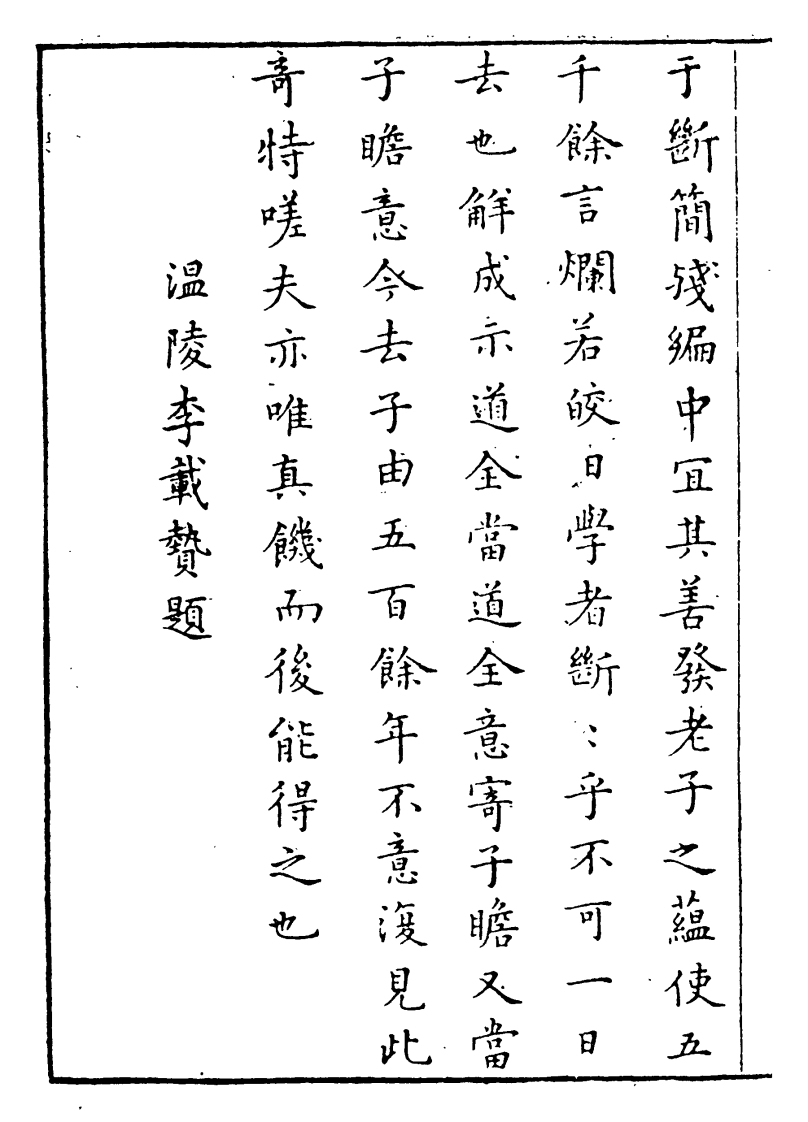 于斷簡殘編中宜其善發老子之蘊使五
千餘言爛若皎日學者斷〻乎不可一日
去也解成示道全當道全意寄子瞻又當
子瞻意今去子由五百餘年不意復見此
奇特嗟夫亦唯真饑而後能得之也
温陵李載贄題